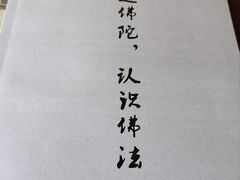 佛陀，认识佛法